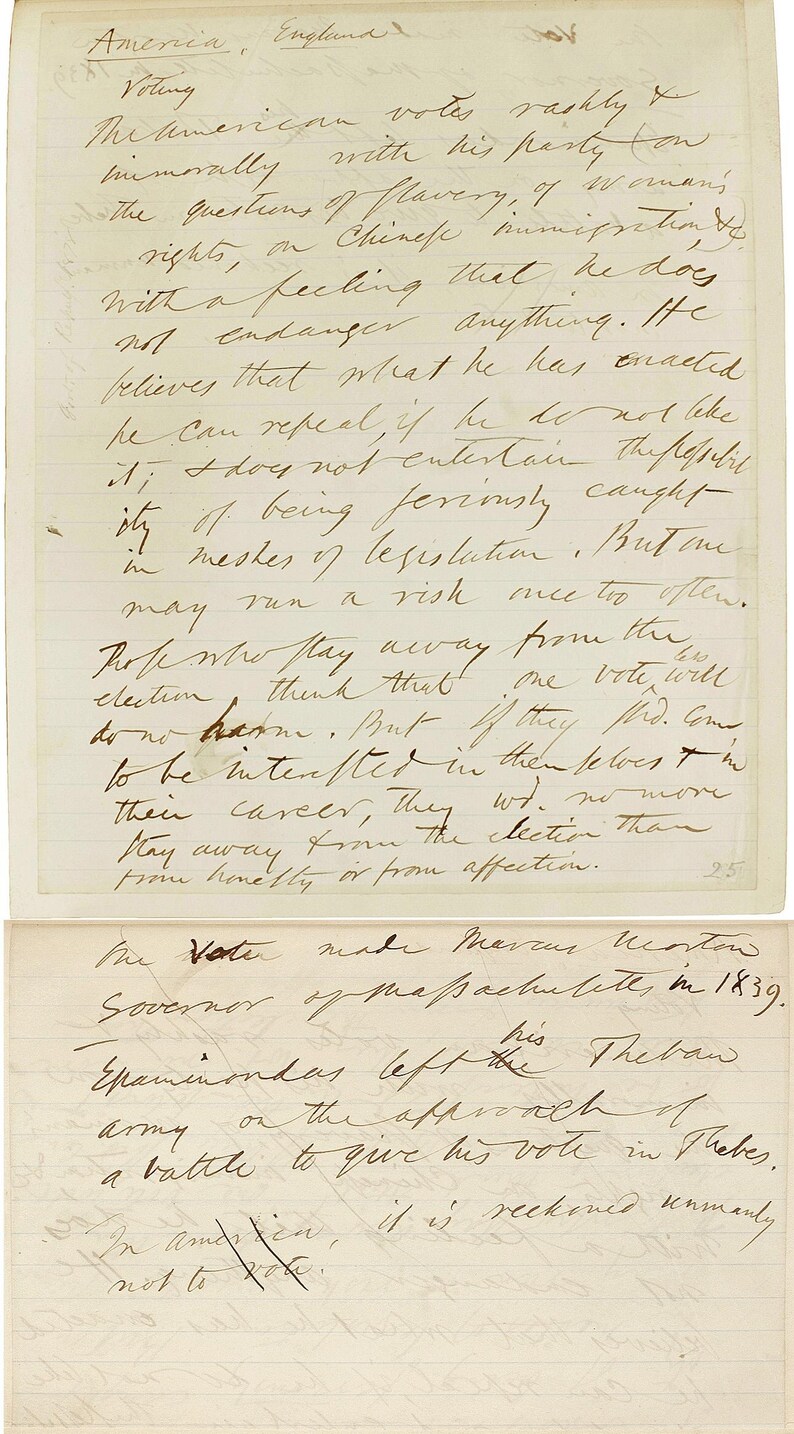 America, England
Voting
The American votes rashly &
immorally with his party (on
the questions of slavery, of woman's
rights, on Chinese immigration, &c)
with a feeling that he does
not endanger anything. He
believes that what he has enacted
he can repeal, if he do not like
it; & does not entertain the possibil
ity of being seriously caught
in meshes of legislation. But one
may run a risk once too often.
Those who stay away from the
election think that one vote less will
do no harm. But if they shd. come
to be interested in themselves & in
their career, they wd. no more
stay away from the election than
from honesty or from affection.
25
One vote made Marcus Morton
Governor of Massachusetts in 1839.
Epaminondas left the his Theban
army on the approach of
a battle to give his vote in Thebes.
In America, it is reckoned unmanly
not to vote.